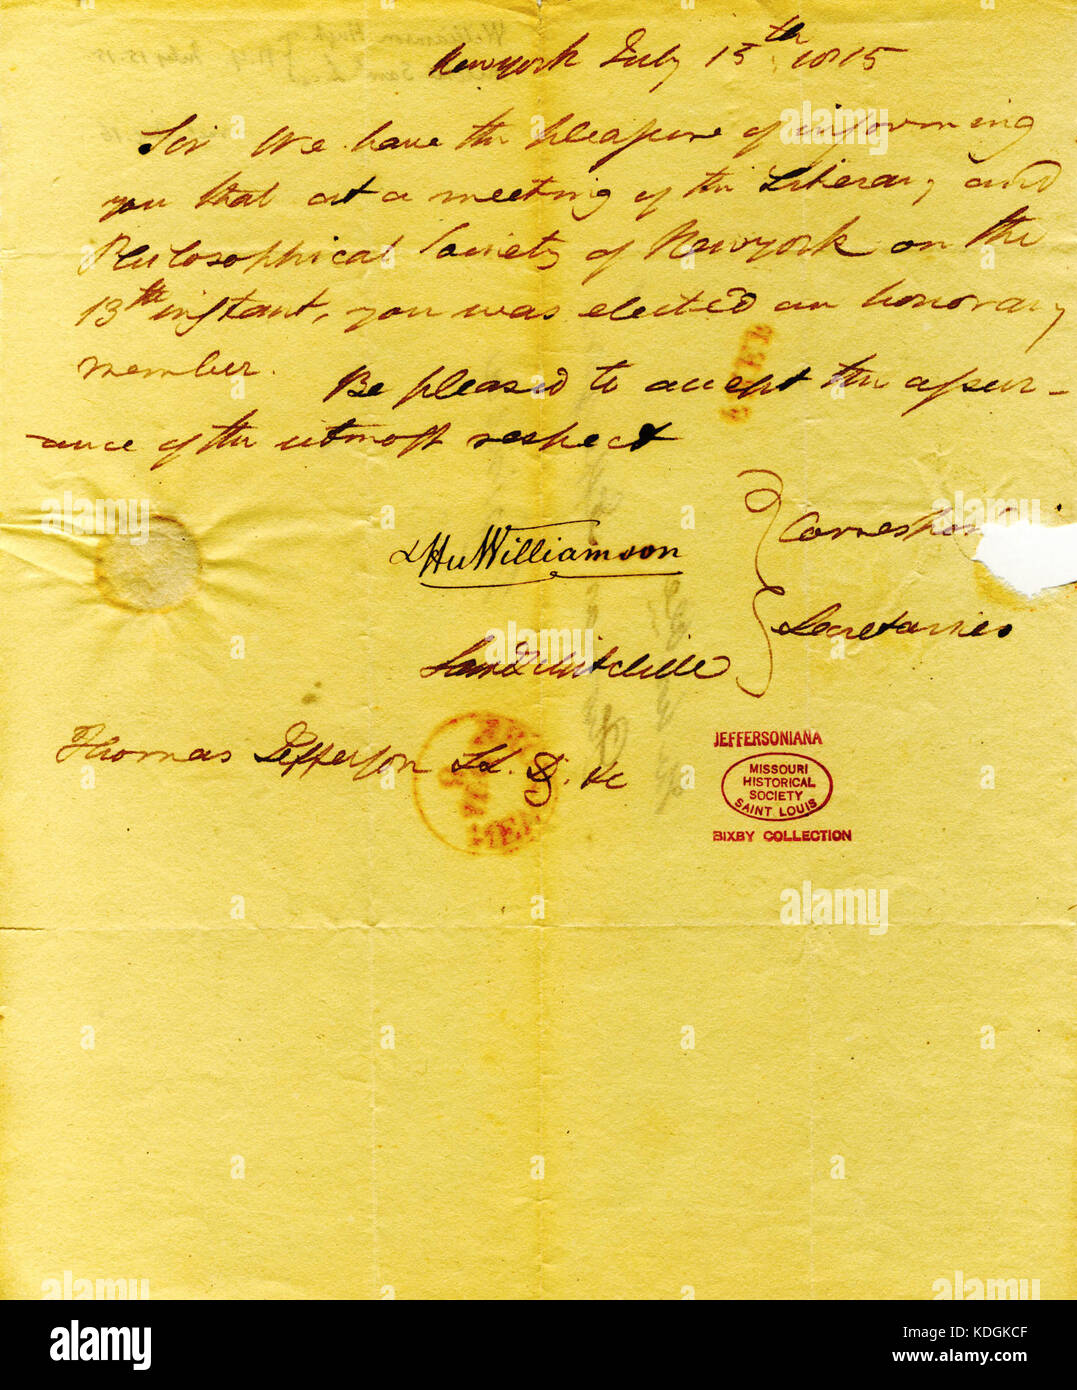 Newyork July 15th 1815
Sir We have the pleasure of informing
you that at a meeting of the Literary and
Philosophical Society of Newyork on the
13th instant, you was elected an honorary
member. Be pleased to accept the assur-
ance of the utmost respect
Hu Williamson
Correspon
Secretaries
Saml L Mitchill
Thomas Jefferson LL. D. &c
FREE
JEFFERSONIANA
MISSOURI
HISTORICAL
SOCIETY
SAINT LOUIS
BIXBY COLLECTION
alamy
Image ID: KDGKCF
www.alamy.com